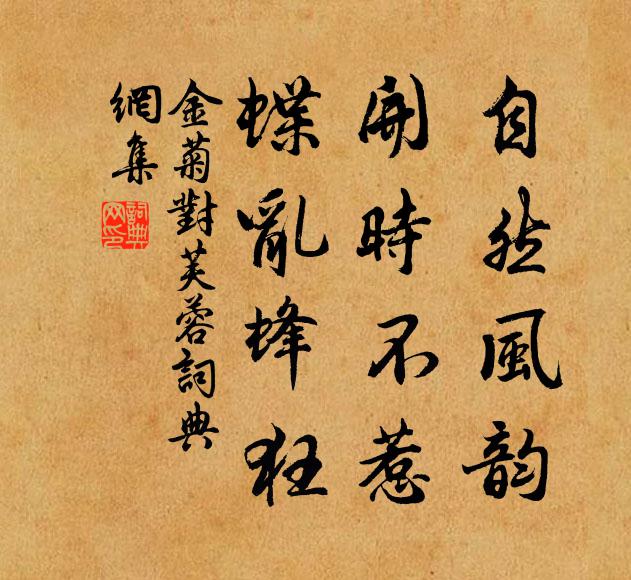 自然風韵
開時不惹
蝶亂蜂狂
金菊對芙蓉詞典
網集
詞典
网印